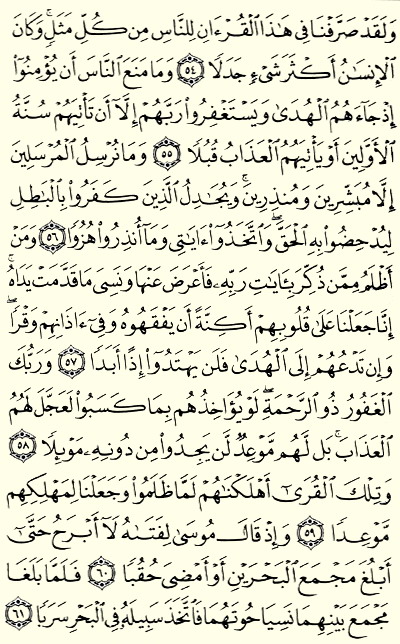 وَلَقَدْ صَرَّفْنَا فِى هَٰذَا ٱلْقُرْءَانِ لِلنَّاسِ مِن كُلِّ مَثَلٍ ۚ وَكَانَ
ٱلْإِنسَٰنُ أَكْثَرَ شَىْءٍ جَدَلًا ٥٤ وَمَا مَنَعَ ٱلنَّاسَ أَن يُؤْمِنُوٓا۟
إِذْ جَآءَهُمُ ٱلْهُدَىٰ وَيَسْتَغْفِرُوا۟ رَبَّهُمْ إِلَّآ أَن تَأْتِيَهُمْ سُنَّةُ
ٱلْأَوَّلِينَ أَوْ يَأْتِيَهُمُ ٱلْعَذَابُ قُبُلًا ٥٥ وَمَا نُرْسِلُ ٱلْمُرْسَلِينَ
إِلَّا مُبَشِّرِينَ وَمُنذِرِينَ ۚ وَيُجَٰدِلُ ٱلَّذِينَ كَفَرُوا۟ بِٱلْبَٰطِلِ
لِيُدْحِضُوا۟ بِهِ ٱلْحَقَّ ۖ وَٱتَّخَذُوٓا۟ ءَايَٰتِى وَمَآ أُنذِرُوا۟ هُزُوًا ٥٦ وَمَنْ
أَظْلَمُ مِمَّن ذُكِّرَ بِـَٔايَٰتِ رَبِّهِۦ فَأَعْرَضَ عَنْهَا وَنَسِىَ مَا قَدَّمَتْ يَدَاهُ ۚ
إِنَّا جَعَلْنَا عَلَىٰ قُلُوبِهِمْ أَكِنَّةً أَن يَفْقَهُوهُ وَفِىٓ ءَاذَانِهِمْ وَقْرًا ۖ
وَإِن تَدْعُهُمْ إِلَى ٱلْهُدَىٰ فَلَن يَهْتَدُوٓا۟ إِذًا أَبَدًا ٥٧ وَرَبُّكَ
ٱلْغَفُورُ ذُو ٱلرَّحْمَةِ ۖ لَوْ يُؤَاخِذُهُم بِمَا كَسَبُوا۟ لَعَجَّلَ لَهُمُ
ٱلْعَذَابَ ۚ بَل لَّهُم مَّوْعِدٌ لَّن يَجِدُوا۟ مِن دُونِهِۦ مَوْئِلًا ٥٨
وَتِلْكَ ٱلْقُرَىٰٓ أَهْلَكْنَٰهُمْ لَمَّا ظَلَمُوا۟ وَجَعَلْنَا لِمَهْلِكِهِم
مَّوْعِدًا ٥٩ وَإِذْ قَالَ مُوسَىٰ لِفَتَىٰهُ لَآ أَبْرَحُ حَتَّىٰٓ
أَبْلُغَ مَجْمَعَ ٱلْبَحْرَيْنِ أَوْ أَمْضِىَ حُقُبًا ٦٠ فَلَمَّا بَلَغَا
مَجْمَعَ بَيْنِهِمَا نَسِيَا حُوتَهُمَا فَٱتَّخَذَ سَبِيلَهُۥ فِى ٱلْبَحْرِ سَرَبًا ٦١